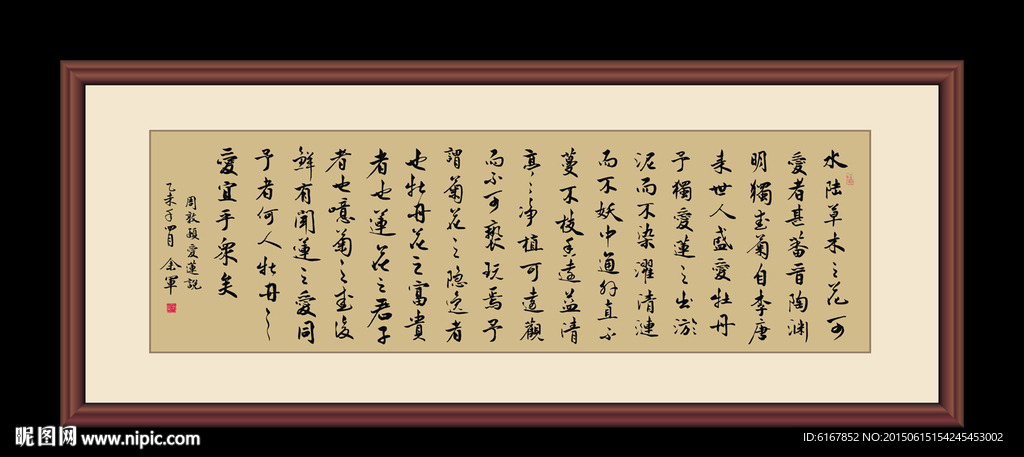 水陸草木之花可
愛者甚蕃晉陶渊
明獨爱菊自李唐
来世人盛愛牡丹
予獨愛蓮之出淤
泥而不染濯清漣
而不妖中通外直不
蔓不枝香遠益清
亭亭净植可遠觀
而不可褻玩焉予
謂菊花之隐逸者
也牡丹花之富貴
者也蓮花之君子
者也噫菊之爱後
鮮有聞蓮之愛同
予者何人牡丹之
愛宜乎衆矣
周敦頤愛蓮説
乙未年四月 余軍
昵图网 www.nipic.com
ID:6167852 NO:20150615154245453002